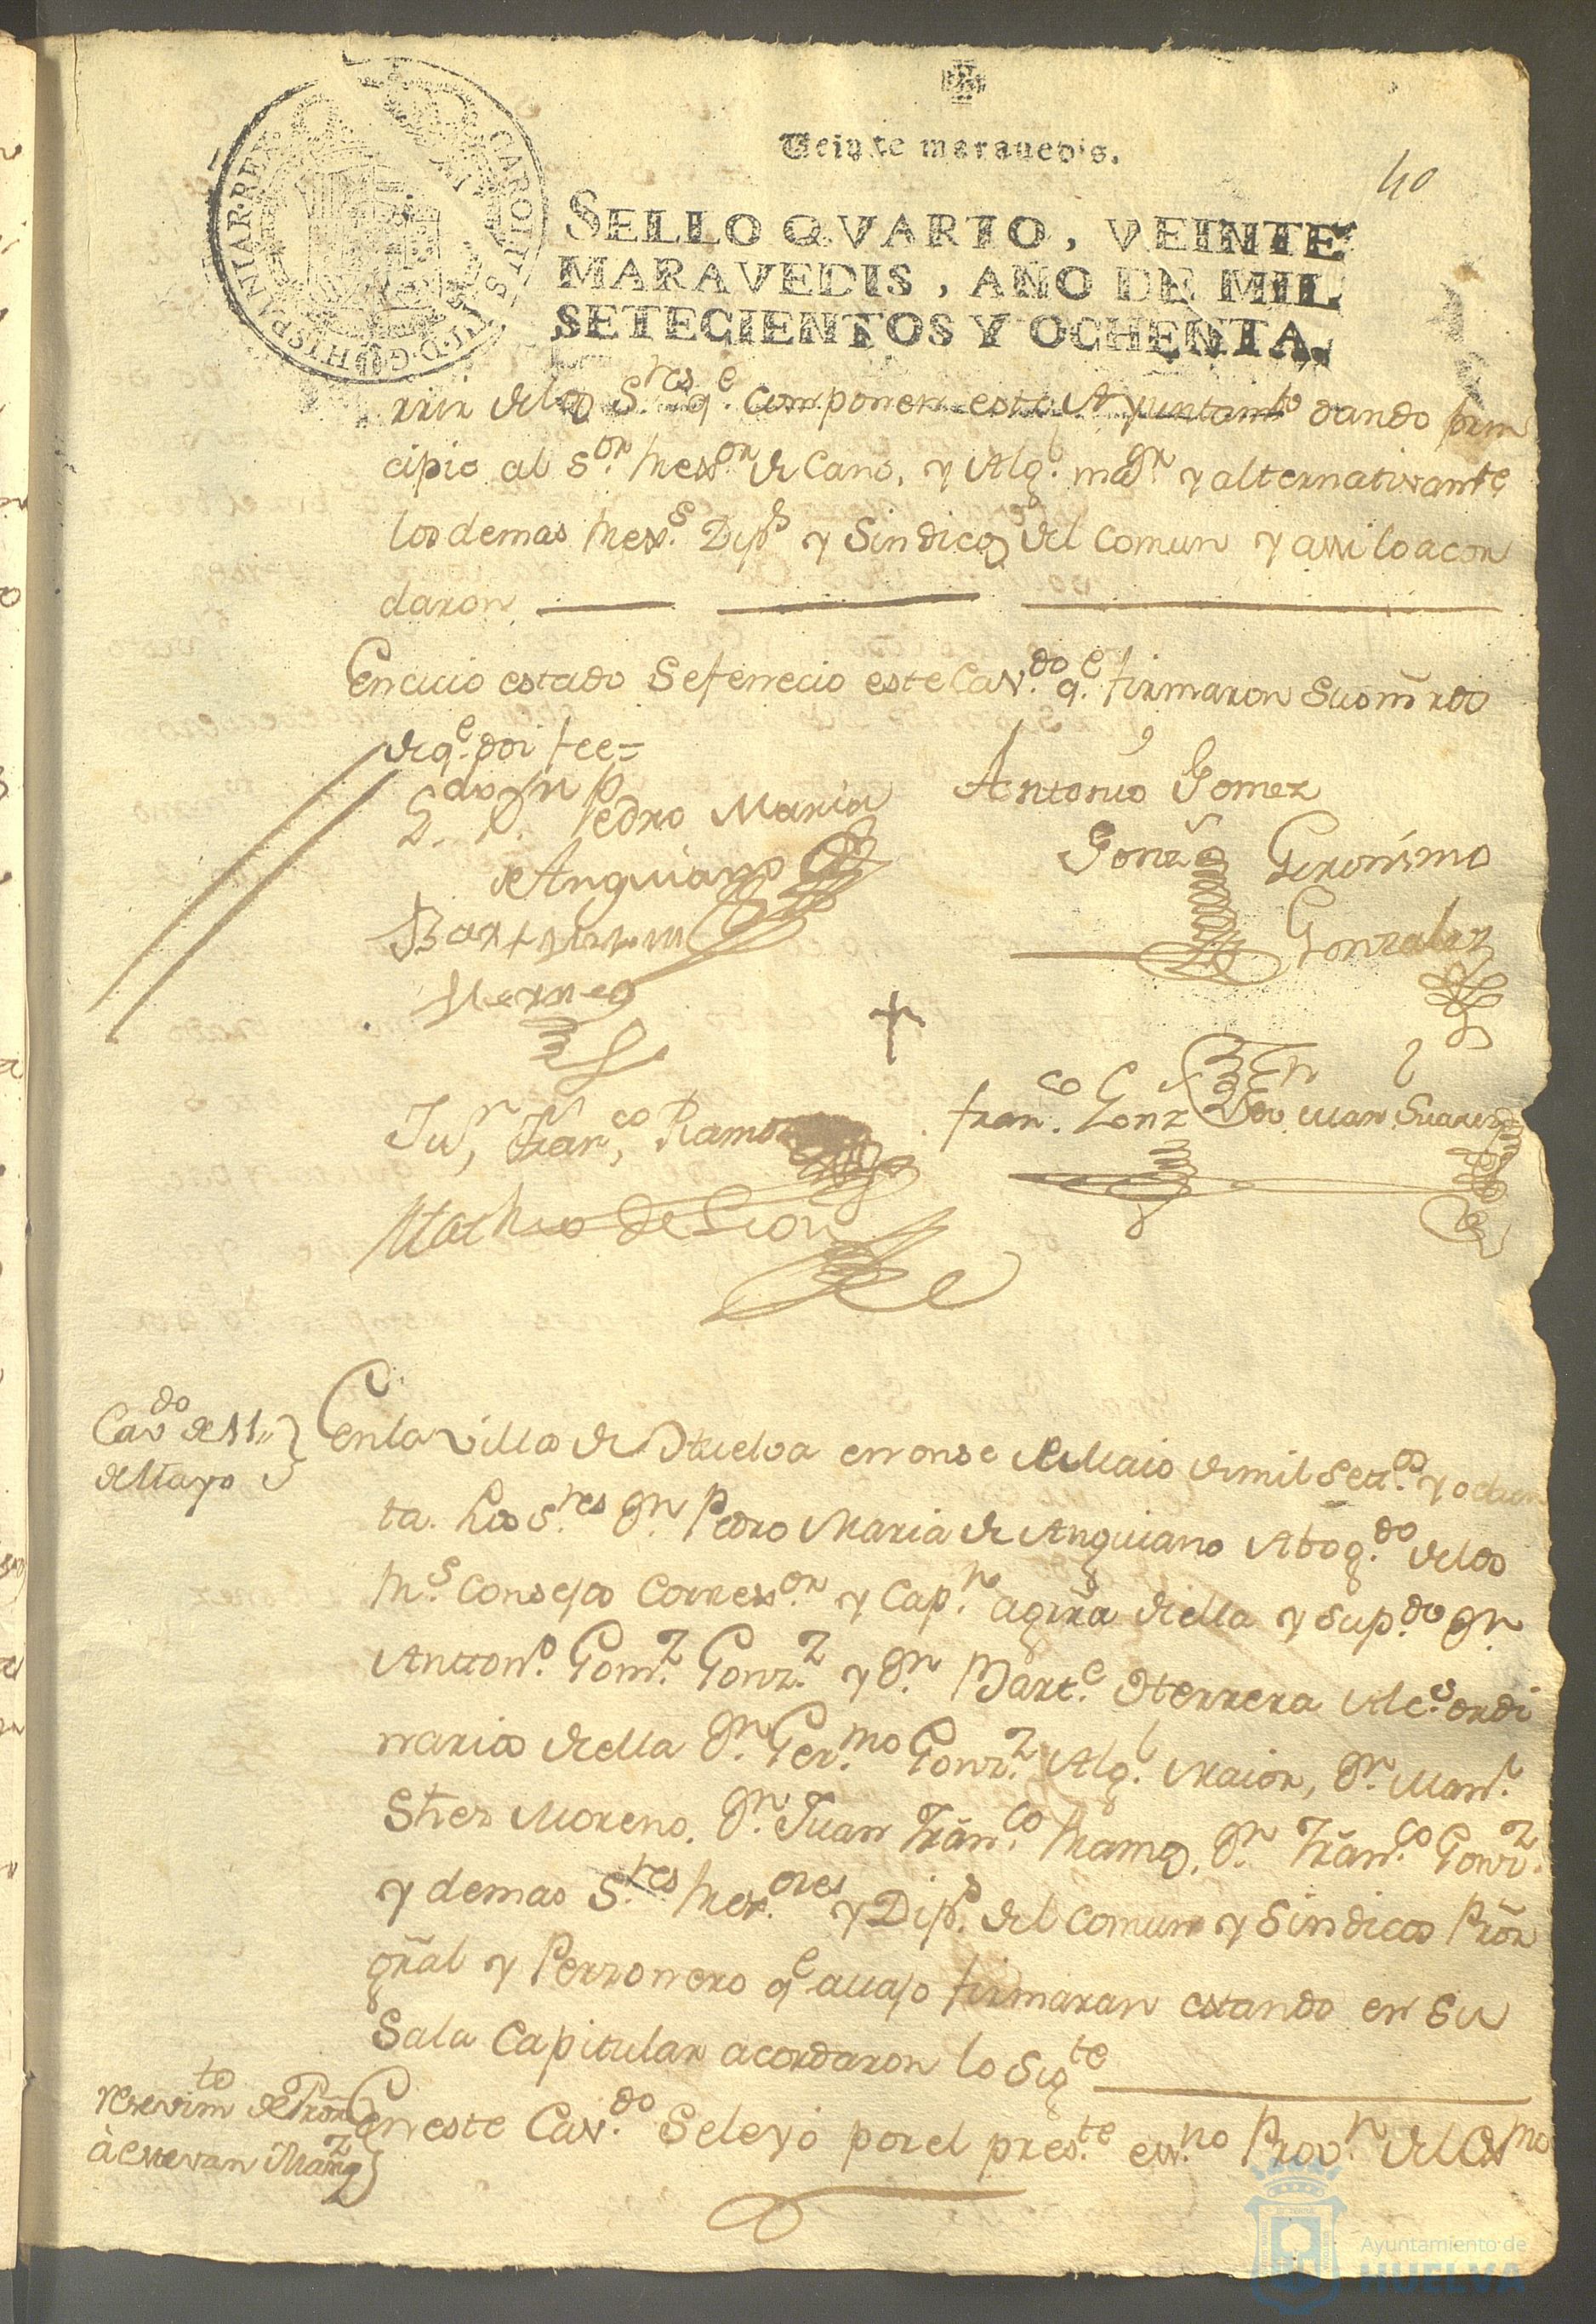 CAROLUS III D.G. HISPANIAR. REX
Veinte marauedis.
40
SELLO QVARTO, VEINTE
MARAVEDIS, AÑO DE MIL
SETECIENTOS Y OCHENTA.
rrir de los S.res q.e componen este Ayuntam.to dando prin
cipio al S.or Rex.or de Cano, y Alg.l ma.or y alternativam.te
los demas Rex.s Dip.s y Sindicos del Comun y assi lo acor
daron
En cuio estado se fenecio este Cav.do q.e firmaron sus m̃rds
de q.e doi fee=
L. D. Pedro Maria
de Anguiano
Antonio Gomez
Gonz Geronimo
Gonzalez
Ju.n Fran.co Ramos
Fran.co Gonz
Juan Suarez
Cav.do de 11,,
de Mayo
En la villa de Huelva en onse de Maio de mil set.os y ochen
ta. Los S.res D.n Pedro Maria de Anguiano Abog.do de los
R.s Consejos Correx.or y Cap.n a gr̃ra de ella y su p.do D.n
Antton.o Gom.z Gonz.z y D.n Bart.e Herrera Alc.s ordi
narios de ella D.n Ger.mo Gonz.z Alg.l Maior, D.n Man.l
Shez Moreno, D.n Juan Fran.co Ramos, D.n Fran.co Gonz.z
y demas S.res Rex.ores y Dip.s del Comun y Sindicos Pror̃
gr̃al y Personero q.e auajo firmaran estando en su
Sala Capitular acordaron lo sig.te
Resevim.to de Pror̃
à Estevan
En este Cav.do se leyó por el pres.te ess.no Prov.n del Ex.mo
Ayuntamiento de
HUELVA